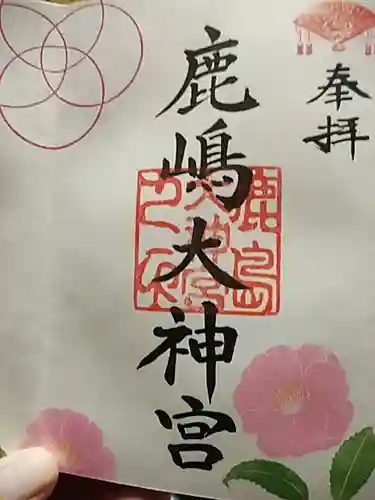 奉拝
鹿嶋大神宮